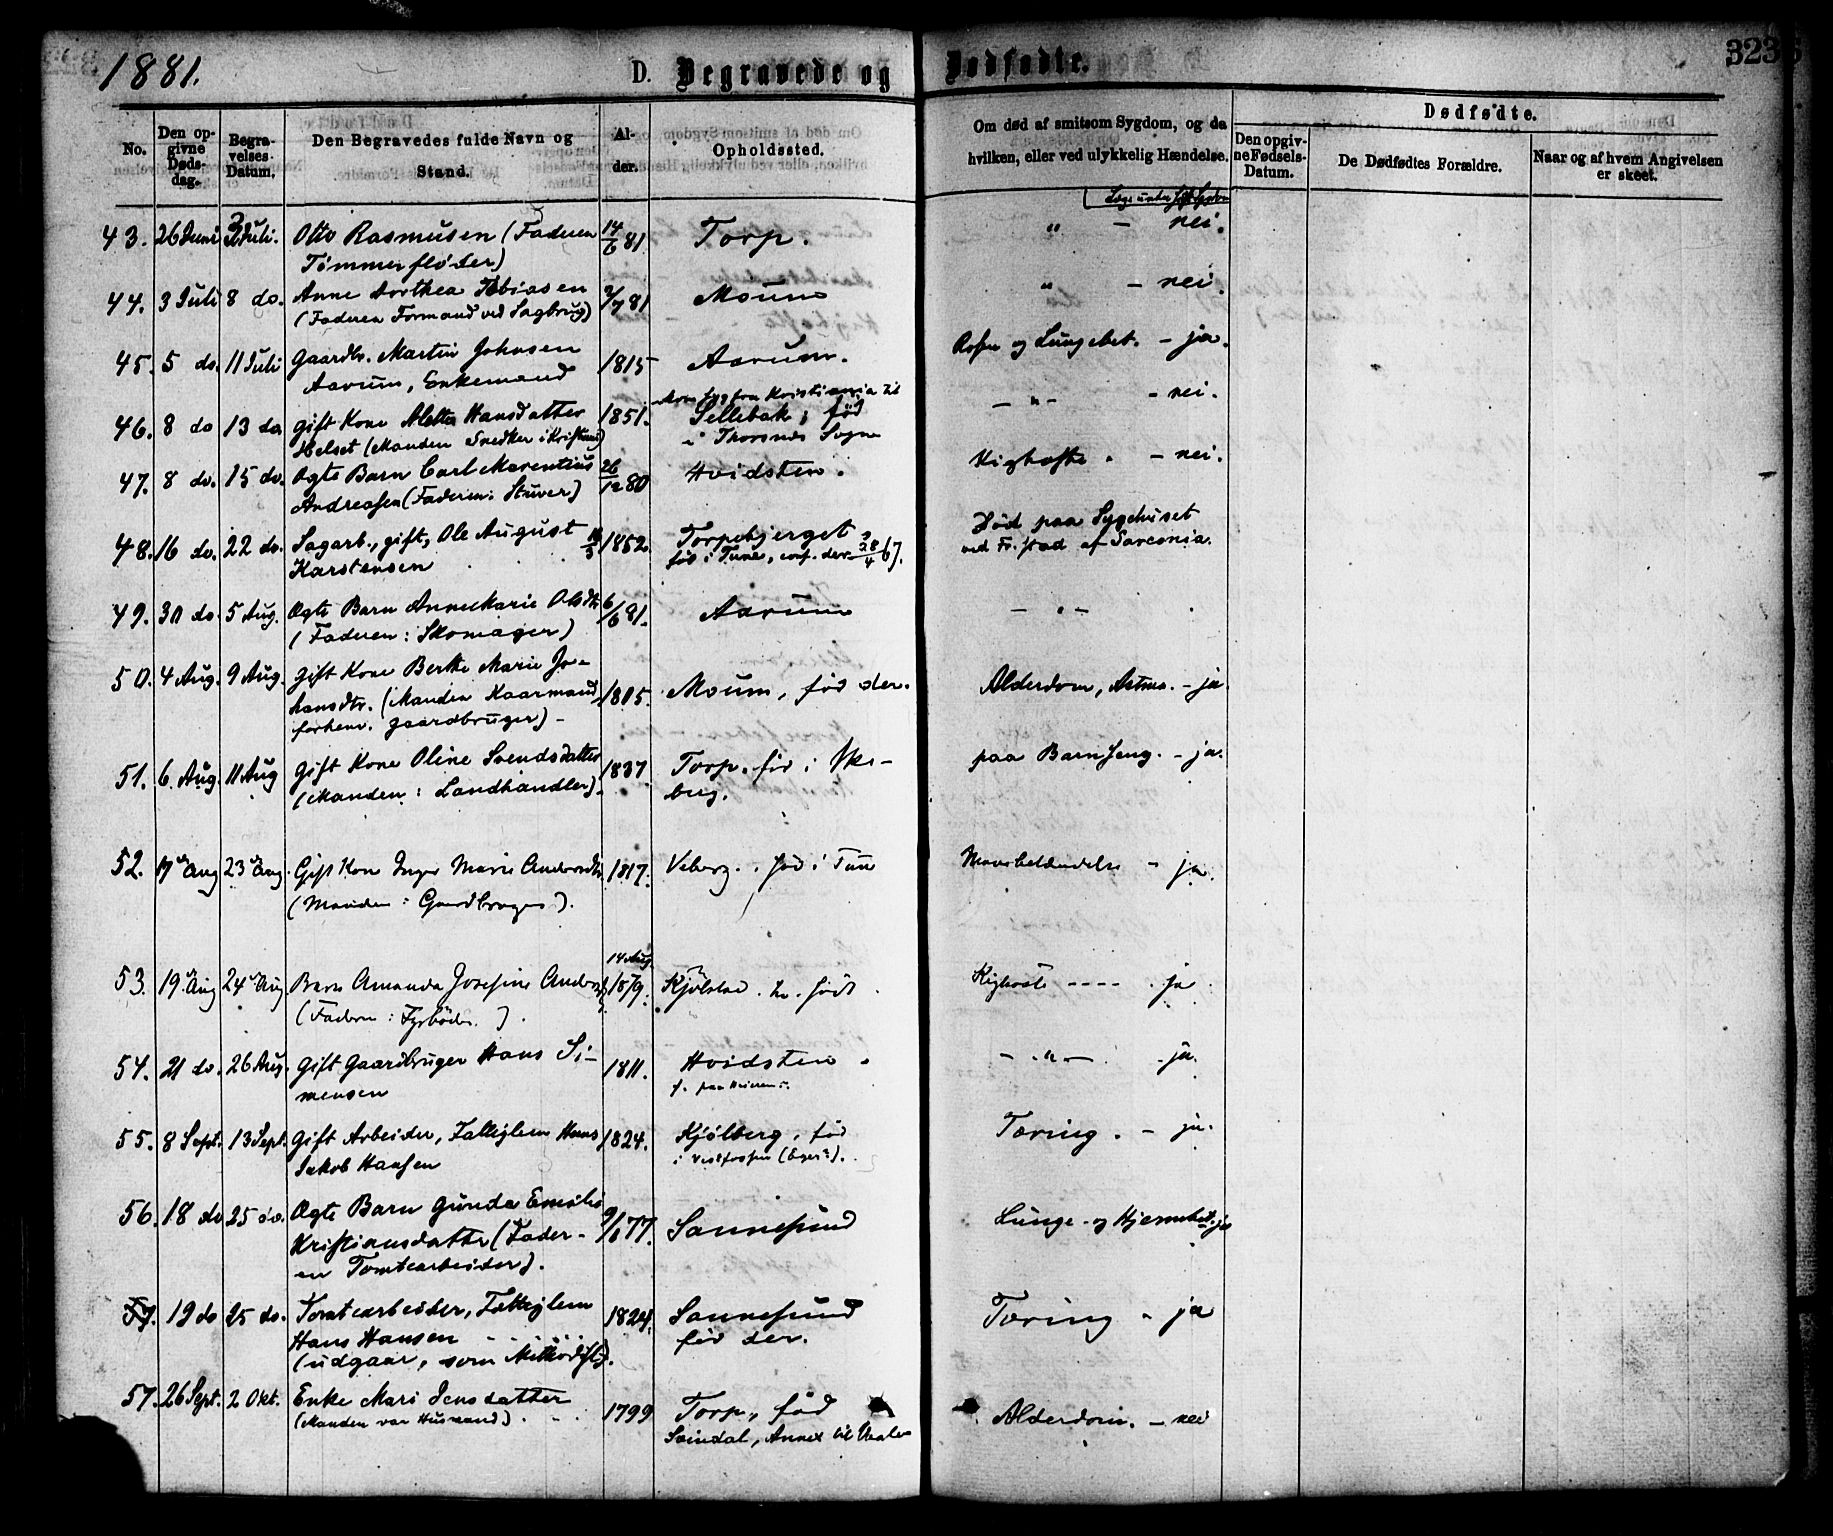 1881.
D. Begravede og Dødfødte.
323
No.
Den op-
givne
Døds-
dag.
Begra-
velses-
Datum.
Den Begravedes fulde Navn og
Stand.
Al-
der.
Opholdssted.
Om død af smitsom Sygdom, og da
hvilken, eller ved ulykkelig Hændelse.
Dødfødte.
Den opgiv-
ne Fødsels-
Datum.
De Dødfødtes Forældre.
Naar og af hvem Angivelsen
er skeet.
43. 26 Juni 3 Juli. Otto Rasmusen (Faderen 14/6 81 Torp. " - nei.
Tømmerfløter)
44. 3 Juli 8 do. Anne Dorthea Tobiasen 2/7 81 Moum " - nei.
(Faderen Formand ved Sagbrug)
45. 5 do. 11 Juli Gaardbr. Martin Johnsen 1815 Aarum. og Lungebet. - ja.
Aarum, Enkemand
46. 8 do 13 do gift Kone Mette Hansdatter 1851. Sellebak; fød - " - - nei.
Helset (Manden Snedker i Kristiania) i Thorsnes Sogn
47. 8 do. 15 do. Ægte Barn Carl Marentius 26/12 80 Hvidsten. Kighoste. - nei.
Andreassen (Faderen: Stuver)
48. 16 do. 22 do. Sagarb., gift, Ole August 1852. Torpebjerget Død paa Sygehuset
Karstensen fød i Tune, conf. der 28/4 67. ved Fr.stad af
49. 30 do. 5 Aug. Ægte Barn Anne Marie Olsdtr. 6/6 81. Aarum - " -
(Faderen: Skomager)
50. 4 Aug. 9 Aug. gift Kone Berthe Marie Jo- 1805. Moum, fød der. Alderdom, Astma. - ja.
hansdtr. (Manden Kaarmand,
forhenv. gaardbruger) -
51. 6. Aug. 11 Aug Gift Kone Oline Svendsdatter 1837. Torp. fød i Ski- paa Barselseng. - ja.
(Manden: Landhandler). berg.
52. 17 Aug 23 Aug. Gift Kone Inger Marie Andersdtr. 1817. Veberg. fød i Tune - ja.
(Manden: Gaardbruger).
14 Aug.
53. 19. Aug 24 Aug Barn Amanda Josefine Anders 1879. Kjølstad. Kighoste - - - - ja
(Faderen: Fyrbøder).
54. 21 do. 26 Aug. Gift Gaardbruger Hans Si- 1811. Hvidsten. - " - - ja.
mensen
55. 8 Sept. 13 Sept. Gift Arbeider, Fattiglem Hans 1824. Kjølberg, fød Tæring. - ja.
Jakob Hansen i Vestfossen (Eger?).
56. 18 do 25 do. Ægte Barn Gunda Emilie 9/1 77. Sannesund Lunge- og Hjernebet. - ja
Kristiansdatter (Fader-
en Tomtearbeider).
57. 19 do 25 do. Tomtearbeider, Fattiglem 1824. Sannesund Tæring - ja
Hans Hansen fød der.
(udgaar, som Methodist).
57. 26 Sept. 2 Okt. Enke Mari Jensdatter 1799 Torp, fød Alderdom. - nei
(Manden var Husmand). Svindal, Annex til Vaaler